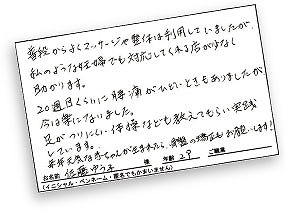 普段からよくマッサージや整体は利用していましたが、
私のような妊婦でも対応してくれる店がなく
助かります。
20週目くらいに腰痛がひどいときもありましたが
今は楽になりました。
足がつりにくい体操なども教えてもらい実践
しています。
来年元気な赤ちゃんが生まれたら、骨盤の矯正もお願いします!
お名前 佐藤ゆう子 様 年齢 29 ご職業
(イニシャル・ペンネーム・匿名でもかまいません)